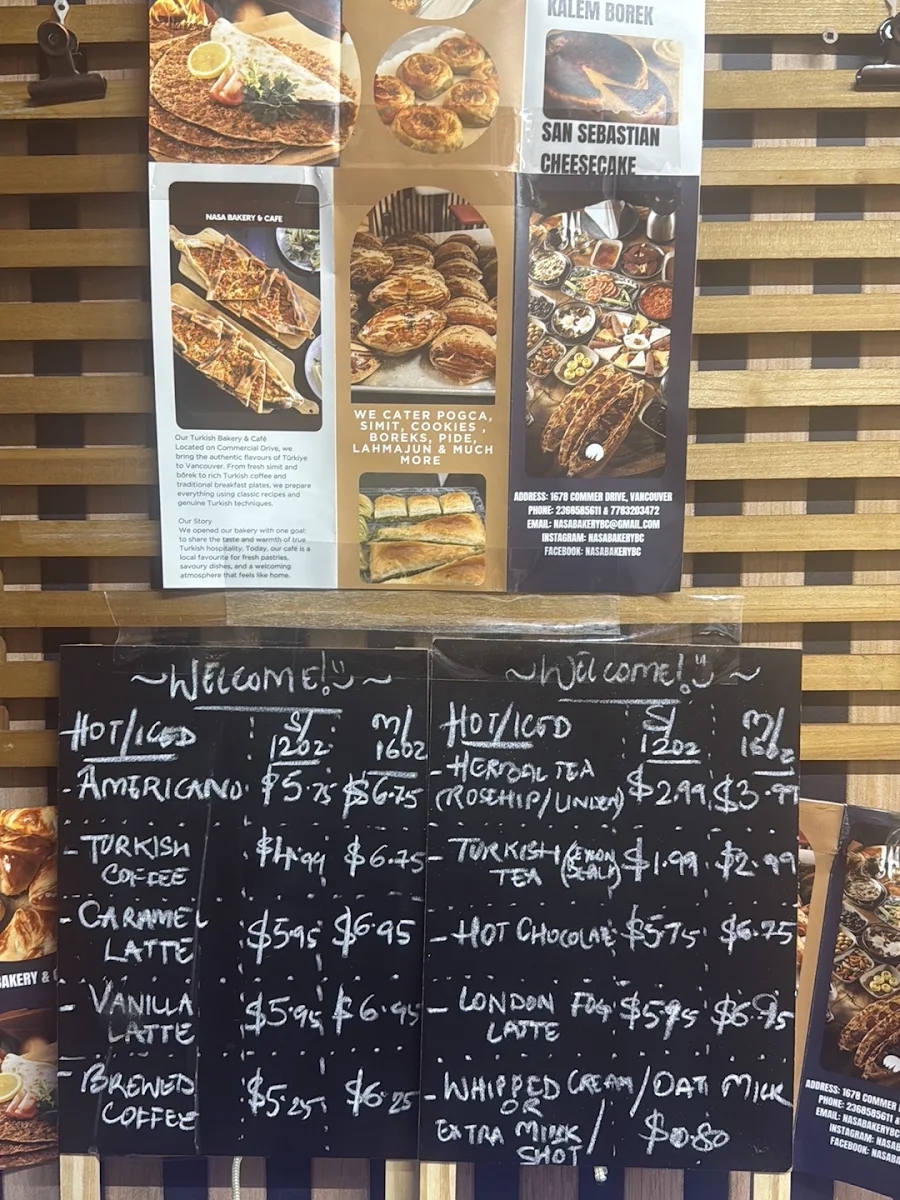 KALEM BOREK
SAN SEBASTIAN
CHEESECAKE
NASA BAKERY & CAFE
Our Turkish Bakery & Café
Located on Commercial Drive, we
bring the authentic flavours of Türkiye
to Vancouver. From fresh simit and
börek to rich Turkish coffee and
traditional breakfast plates, we prepare
everything using classic recipes and
genuine Turkish techniques.
Our Story
We opened our bakery with one goal:
to share the taste and warmth of true
Turkish hospitality. Today, our café is a
local favourite for fresh pastries,
savoury dishes, and a welcoming
atmosphere that feels like home.
WE CATER POGCA,
SIMIT, COOKIES ,
BOREKS, PIDE,
LAHMAJUN & MUCH
MORE
ADDRESS: 1678 COMMER DRIVE, VANCOUVER
PHONE: 2368585611 & 7783203472
EMAIL: NASABAKERYBC@GMAIL.COM
INSTAGRAM: NASABAKERYBC
FACEBOOK: NASABAKERYBC
~WELCOME!~
HOT/ICED S/ 12oz M/ 16oz
- AMERICANO $5.75 $6.75
- TURKISH COFFEE $4.99 $6.75
- CARAMEL LATTE $5.95 $6.95
- VANILLA LATTE $5.95 $6.95
- BREWED COFFEE $5.25 $6.25
~WELCOME!~
HOT/ICED S/ 12oz M/ 16oz
- HERBAL TEA (ROSEHIP/LINDEN) $2.99 $3.99
- TURKISH TEA $1.99 $2.99
- HOT CHOCOLATE $5.75 $6.75
- LONDON FOG LATTE $5.95 $6.95
- WHIPPED CREAM/OAT MILK
OR
EXTRA MILK / $0.80
SHOT
BAKERY &
ADDRESS: 1678 COMMER
PHONE: 2368585611 &
EMAIL: NASABAK
INSTAGRAM: NASAB
FACEBOOK: NASABA